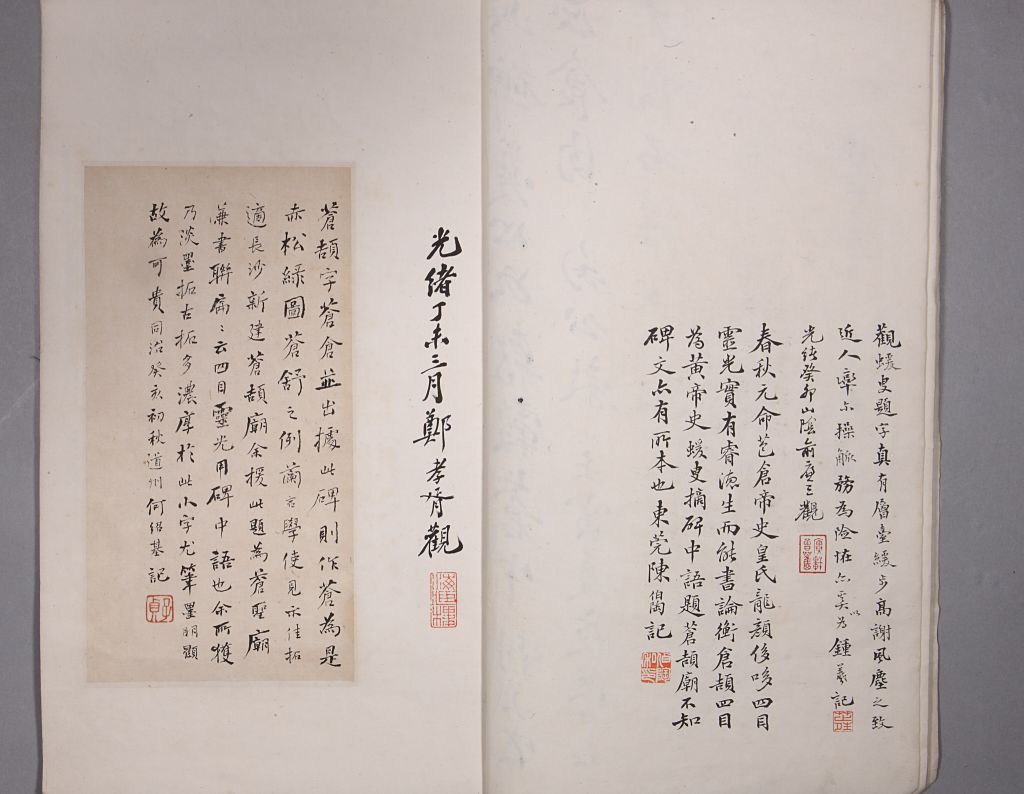 觀蝯叟題字真有層臺緩步高謝風塵之致
近人率尒操觚務為險怪亦奚以為 鍾羲記
光緒癸卯山陰俞廉三觀
春秋元命苞倉帝史皇氏龍顏侈哆四目
靈光實有睿德生而能書論衡倉頡四目
為黃帝史蝯叟摘碑中語題蒼頡廟不知
碑文亦有所本也 東莞陳伯陶記
光緒丁未三月鄭孝胥觀
蒼頡字蒼倉並出據此碑則作蒼為是
赤松綠圖蒼舒之例蘭言學使見示佳拓
適長沙新建蒼頡廟余援此題為蒼聖廟
兼書聯屬云四目靈光用碑中語也余所獲
乃淡墨拓古拓多濃厚於此小字尤筆墨明顯
故為可貴同治癸亥初秋道州何紹基記